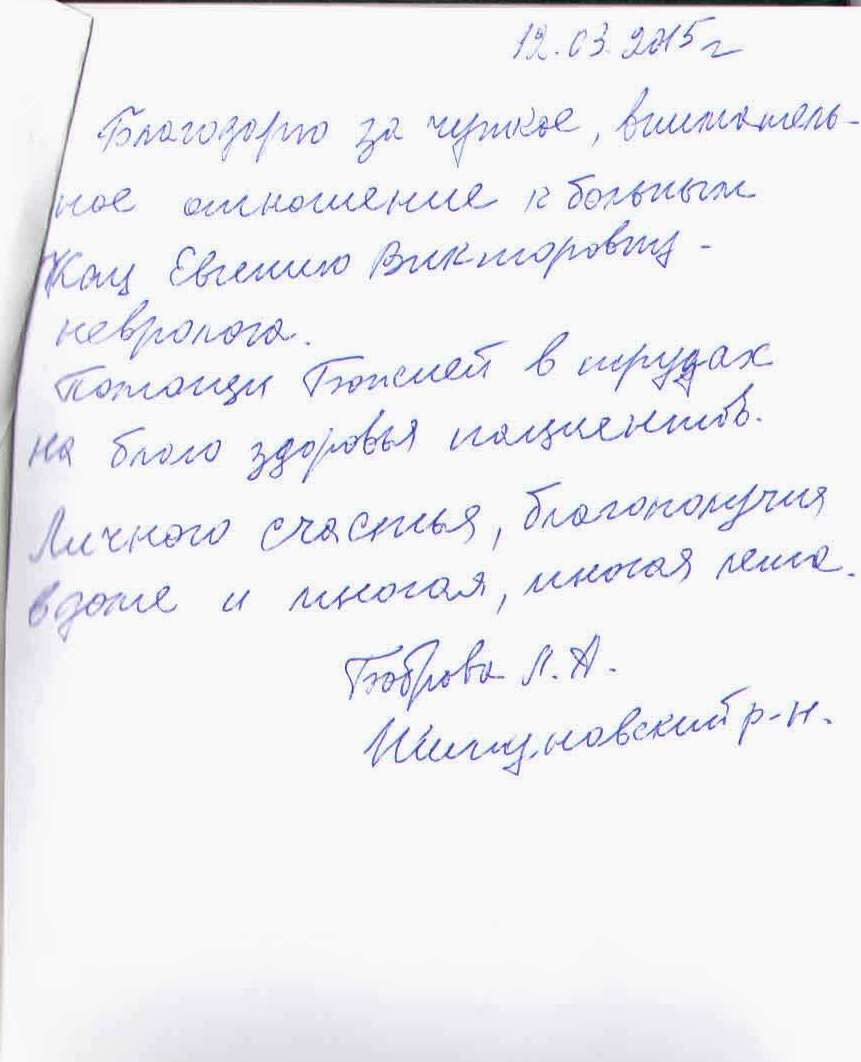 12.03.2015 г
Благодарю за чуткое, вниматель-
ное отношение к больным
Кац Евгению Викторовичу -
невролога.
Помощи Божией в трудах
на благо здоровья пациентов.
Личного счастья, благополучия
в доме и многая, многая лета.
Боброва Л. А.
Шипуновский р-н.